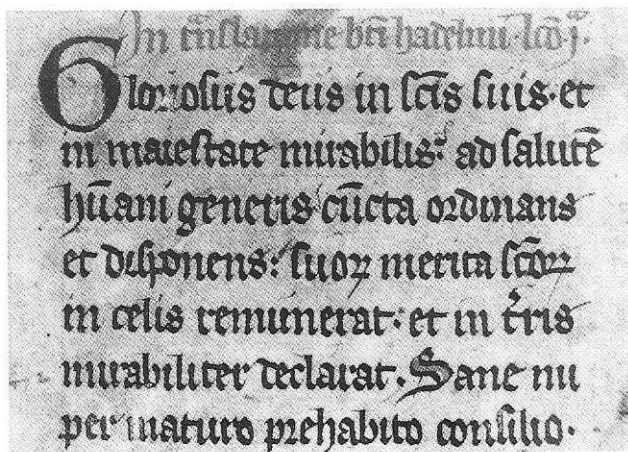 In tnſlatione bti hadelini. lco j͛.
Glorioſus deus in ſcis ſuis. et
in maieſtate mirabilis: ad ſalutē
hūani generis cūcta ordinans
et diſponens: ſuoꝝ merita ſcoꝝ
in celis remunerat: et in tris
mirabiliter declarat. Sane nu
per maturo prehabito conſilio.